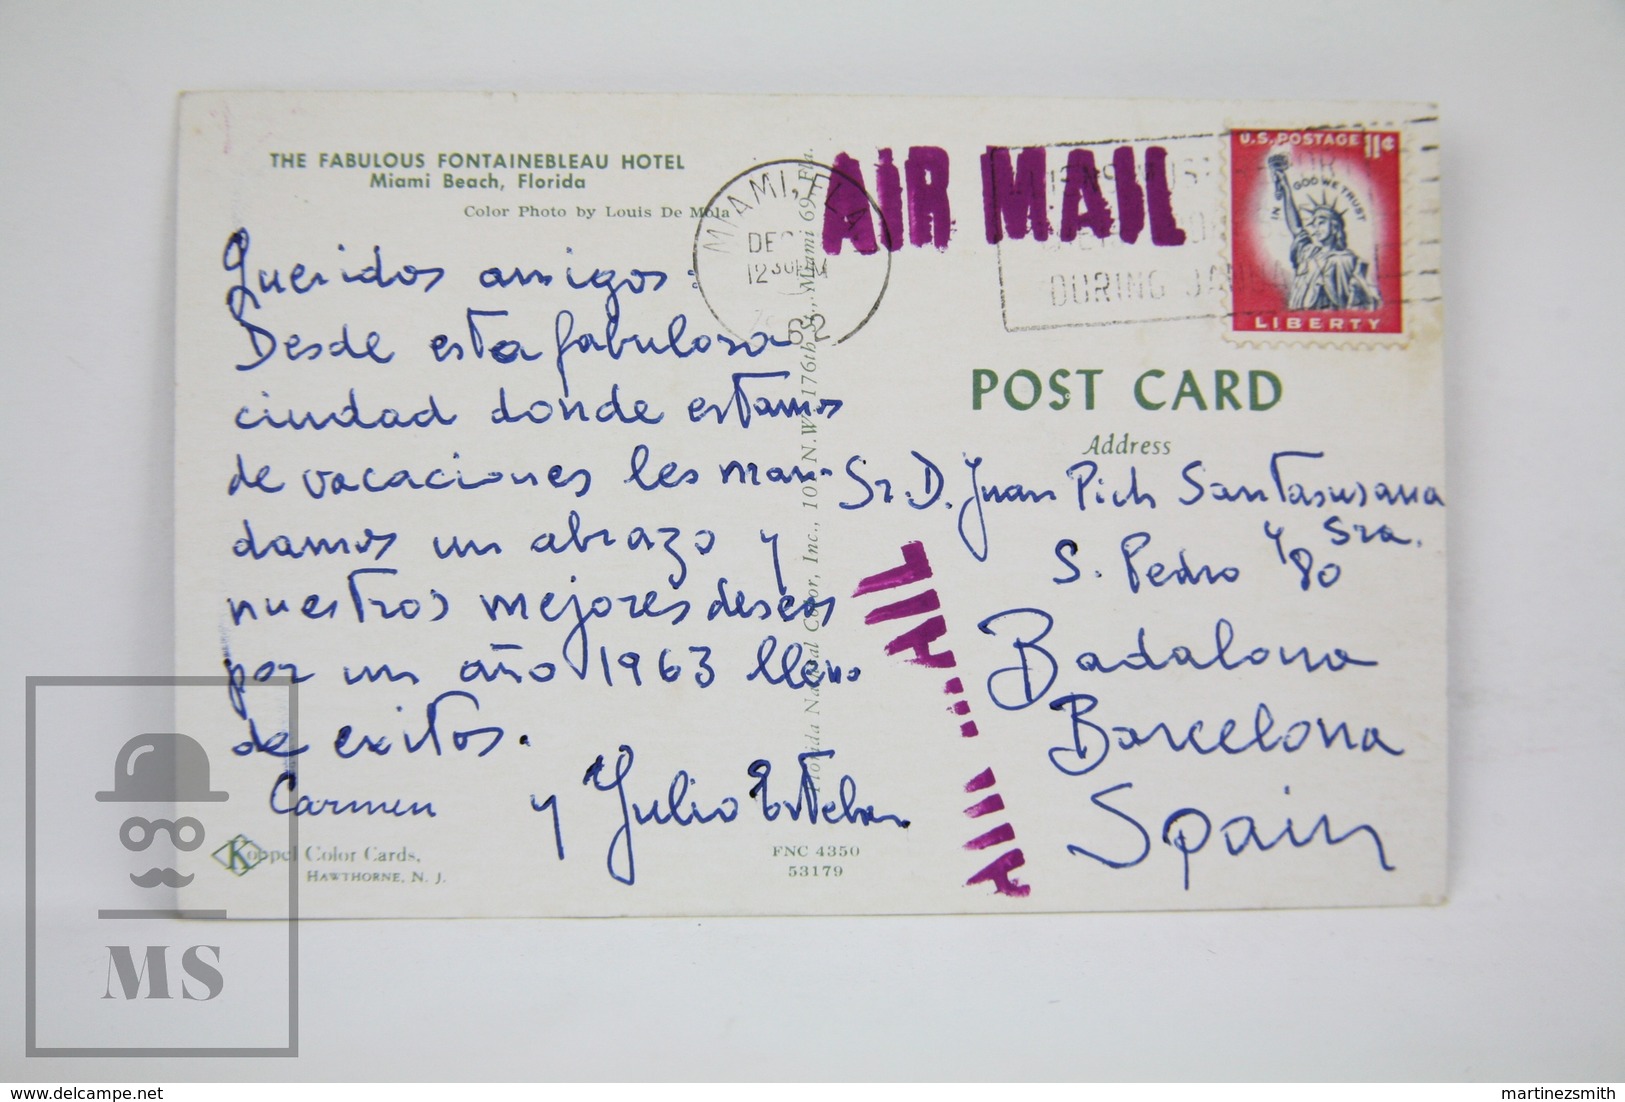 THE FABULOUS FONTAINEBLEAU HOTEL
Miami Beach, Florida
Color Photo by Louis De Mola
Queridos amigos:
Desde esta fabulosa
ciudad donde estamos
de vacaciones les man-
damos un abrazo y
nuestros mejores deseos
por un año 1963 lleno
de exitos.
Carmen y Julio Esteban
Koppel Color Cards,
HAWTHORNE, N. J.
FNC 4350
53179
Florida Natural Color, Inc., 101 N.W. 176th St., Miami 69, Fla.
MIAMI, FLA
DEC
12 30 PM
62
AIR MAIL
DURING
U.S. POSTAGE 11¢
IN GOD WE TRUST
LIBERTY
POST CARD
Address
Sr. D. Juan Pich Santasusana
y Sra.
S. Pedro 80
Badalona
Barcelona
Spain
AIR MAIL
MS
delcampe.net
martinezsmith